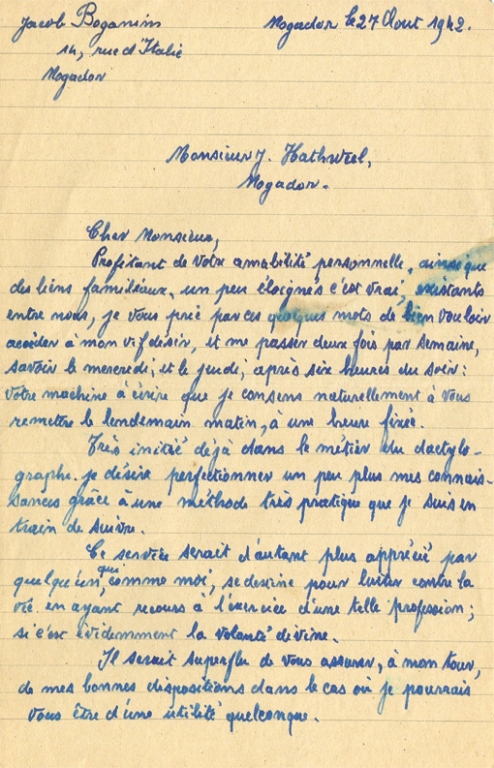 Jacob Boganim
14, rue d'Italie
Mogador
Mogador le 27 Aout 1942.
Monsieur J. Hathwel,
Mogador.
Cher Monsieur,
Profitant de votre amabilité personnelle, ainsi que
des liens familiaux, un peu éloignés c'est vrai, existants
entre nous, je vous prie par ces quelques mots de bien vouloir
accéder à mon vif désir, et me passer deux fois par semaine,
savoir le mercredi, et le jeudi, après six heures du soir:
votre machine à écrire que je consens naturellement à vous
remettre le lendemain matin, à une heure fixée.
Très initié déjà dans le métier du dactylo-
graphe. je désire perfectionner un peu plus mes connais-
sances grâce à une méthode très pratique que je suis en
train de suivre.
Ce service serait d'autant plus apprécié par
quelqu'un qui, comme moi, se destine pour lutter contre la
vie. en ayant recours à l'exercice d'une telle profession;
si c'est évidemment la volonté divine.
Il serait superflu de vous assurer, à mon tour,
de mes bonnes dispositions dans le cas où je pourrais
vous être d'une utilité quelconque.